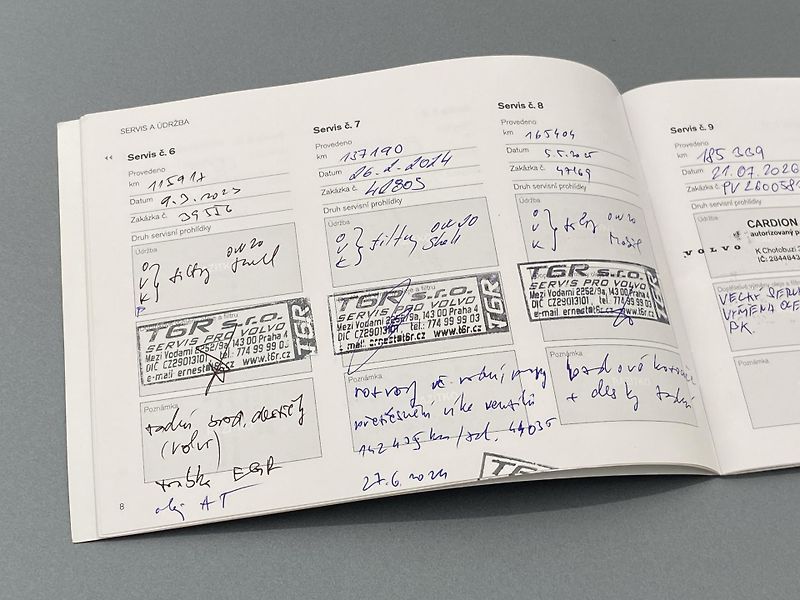 SERVIS A ÚDRŽBA
Servis č. 6
Provedeno
km 115917
Datum 9.3.2023
Zakázka č. 39556
Druh servisní prohlídky
Údržba
O
V
K
filtry
0W20
P
T6R s.r.o.
SERVIS PRO VOLVO
Mezi Vodami 2252/9a, 143 00 Praha 4
DIČ CZ29013101, tel.: 774 99 99 03
e-mail: ernest@t6r.cz www.t6r.cz
T6R
Poznámka
zadní brzd. destičky
(volvo)
EGR
olej AT
8
Servis č. 7
Provedeno
km 137190
Datum 26.2.2024
Zakázka č. 42805
Druh servisní prohlídky
Údržba
O
V
K
filtry
0W20
Shell
T6R s.r.o.
SERVIS PRO VOLVO
Mezi Vodami 2252/9a, 143 00 Praha 4
DIČ CZ29013101, tel.: 774 99 99 03
e-mail: ernest@t6r.cz www.t6r.cz
T6R
Poznámka
rozvody vč. vodní pumpy
přetěsnění víka ventilů
142475 km/zak. 44035
27.6.2024
T6R
Servis č. 8
Provedeno
km 165404
Datum 5.5.2025
Zakázka č. 47169
Druh servisní prohlídky
Údržba
O
V
K
filtry
0W20
Mobil
T6R s.r.o.
SERVIS PRO VOLVO
Mezi Vodami 2252/9a, 143 00 Praha 4
DIČ CZ29013101, tel.: 774 99 99 03
e-mail: ernest@t6r.cz www.t6r.cz
T6R
Poznámka
brzdové kotouče
+ desky zadní
Servis č. 9
Provedeno
km 185 339
Datum 21.07.2026
Zakázka č. PV260058
Druh servisní prohlídky
Údržba
VOLVO
CARDION
autorizovaný
K Chotobuzi
IČ: 2848443
VELKÝ
VÝMĚNA OLE
PK.
Poznámka